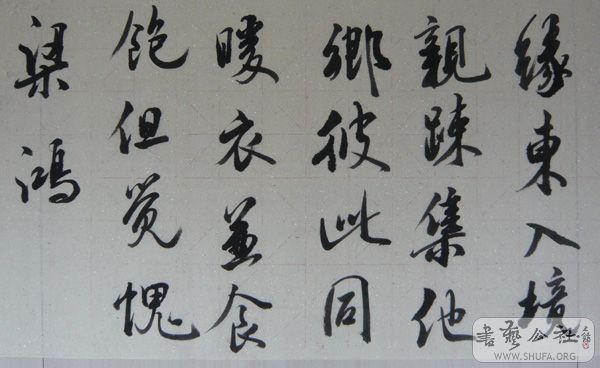 緣東入境
親踈集他
鄉彼此同
暖衣兼食
飽但觉愧
梁鴻
書藝公社
WWW.SHUFA.ORG